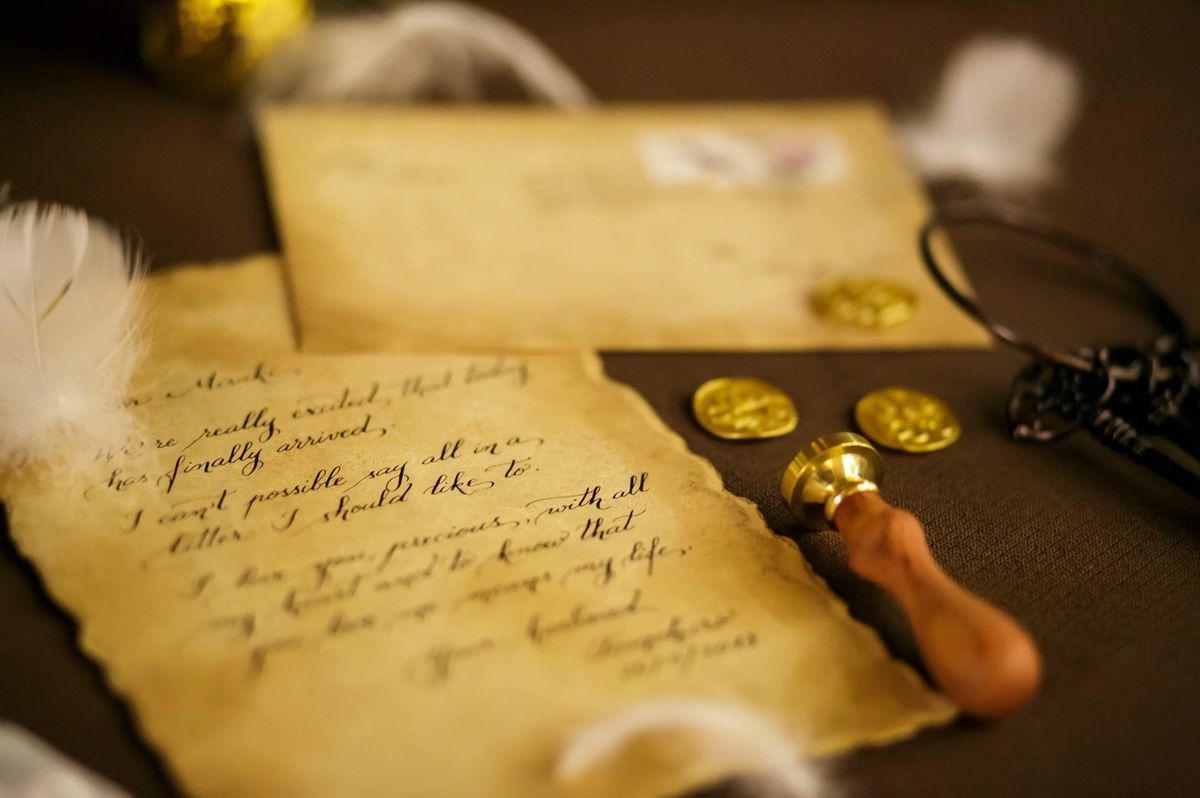 Misaki
We're really excited that today
has finally arrived.
I can't possible say all in a
letter I should like to.
I love you, precious, with all
my heart and to know that
you love me means my life.
Your husband